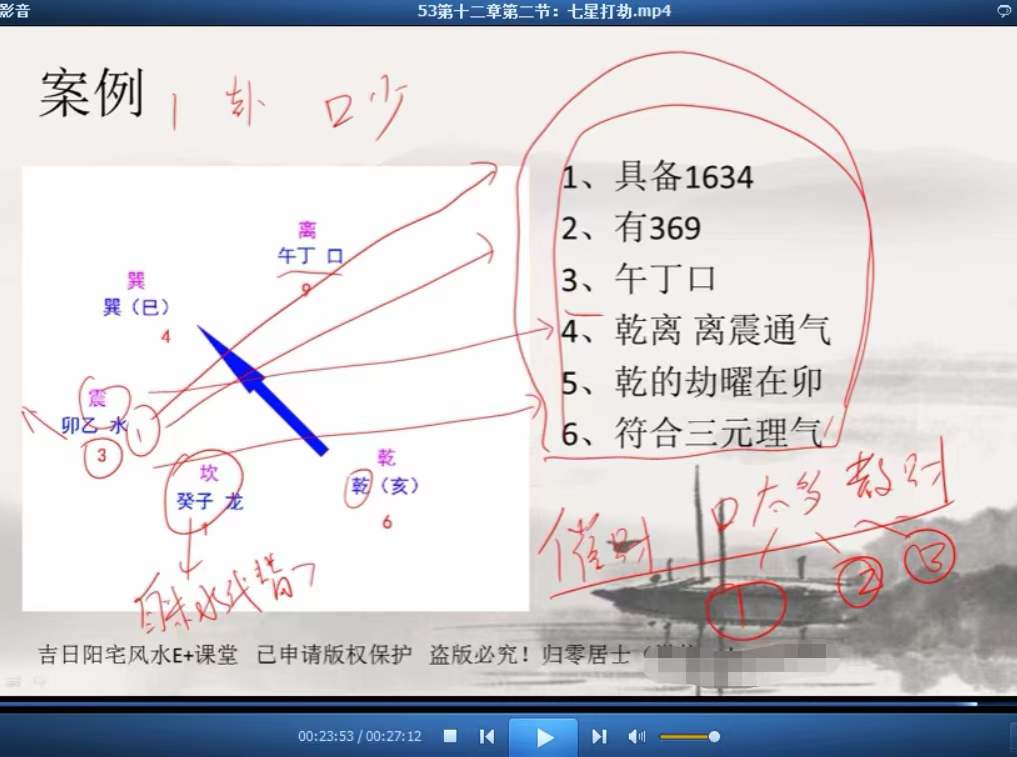 影音
53第十二章第二节：七星打劫.mp4
案例
1 卦 口少
1、具备1634
2、有369
3、午丁口
4、乾离 离震通气
5、乾的劫曜在卯
6、符合三元理气
离
午丁 口
9
巽
巽（巳）
4
震
卯乙 水
1
3
坎
癸子 龙
1
乾
乾（亥）
6
催财 口太多 散财
1 2 3
吉日阳宅风水E+课堂 已申请版权保护 盗版必究！归零居士（
00:23:53 / 00:27:12